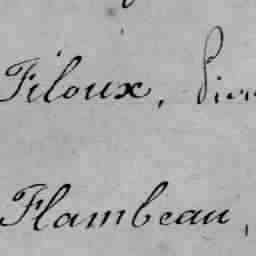 Filoux,
Flambeau,